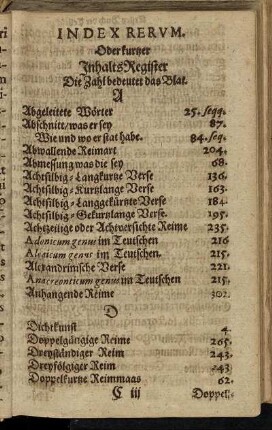 INDEX RERVM.
Oder kurtzer
Inhalts Register
Die Zahl bedeutet das Blat.
A
Abgeleitete Wörter 25. seqq.
Abschnitt/was er sey 87.
Wie und wo er stat habe. 84. seq.
Abwallende Reimart 204.
Abmessung was die sey 68.
Achtsilbig-Langkurtze Verse 136.
Achtsilbig-Kurtzlange Verse 163.
Achtsilbig-Langgekürtzte Verse 184.
Achtsilbig-Gekurtzlange Verse. 195.
Achtzeilige oder Achtversichte Reime 235.
Adonicum genus im Teutschen 216
Alcaicum genus im Teutschen. 215.
Alexandrinische Verse 221.
Anacreonticum genus im Teutschen 215.
Anhangende Reime 302.
D
Dichtkunst 4.
Doppelgängige Reime 265.
Dreyständiger Reim 243.
Dreyfolgiger Reim 243.
Doppelkurtze Reimmaas 62.
C iij Doppel-